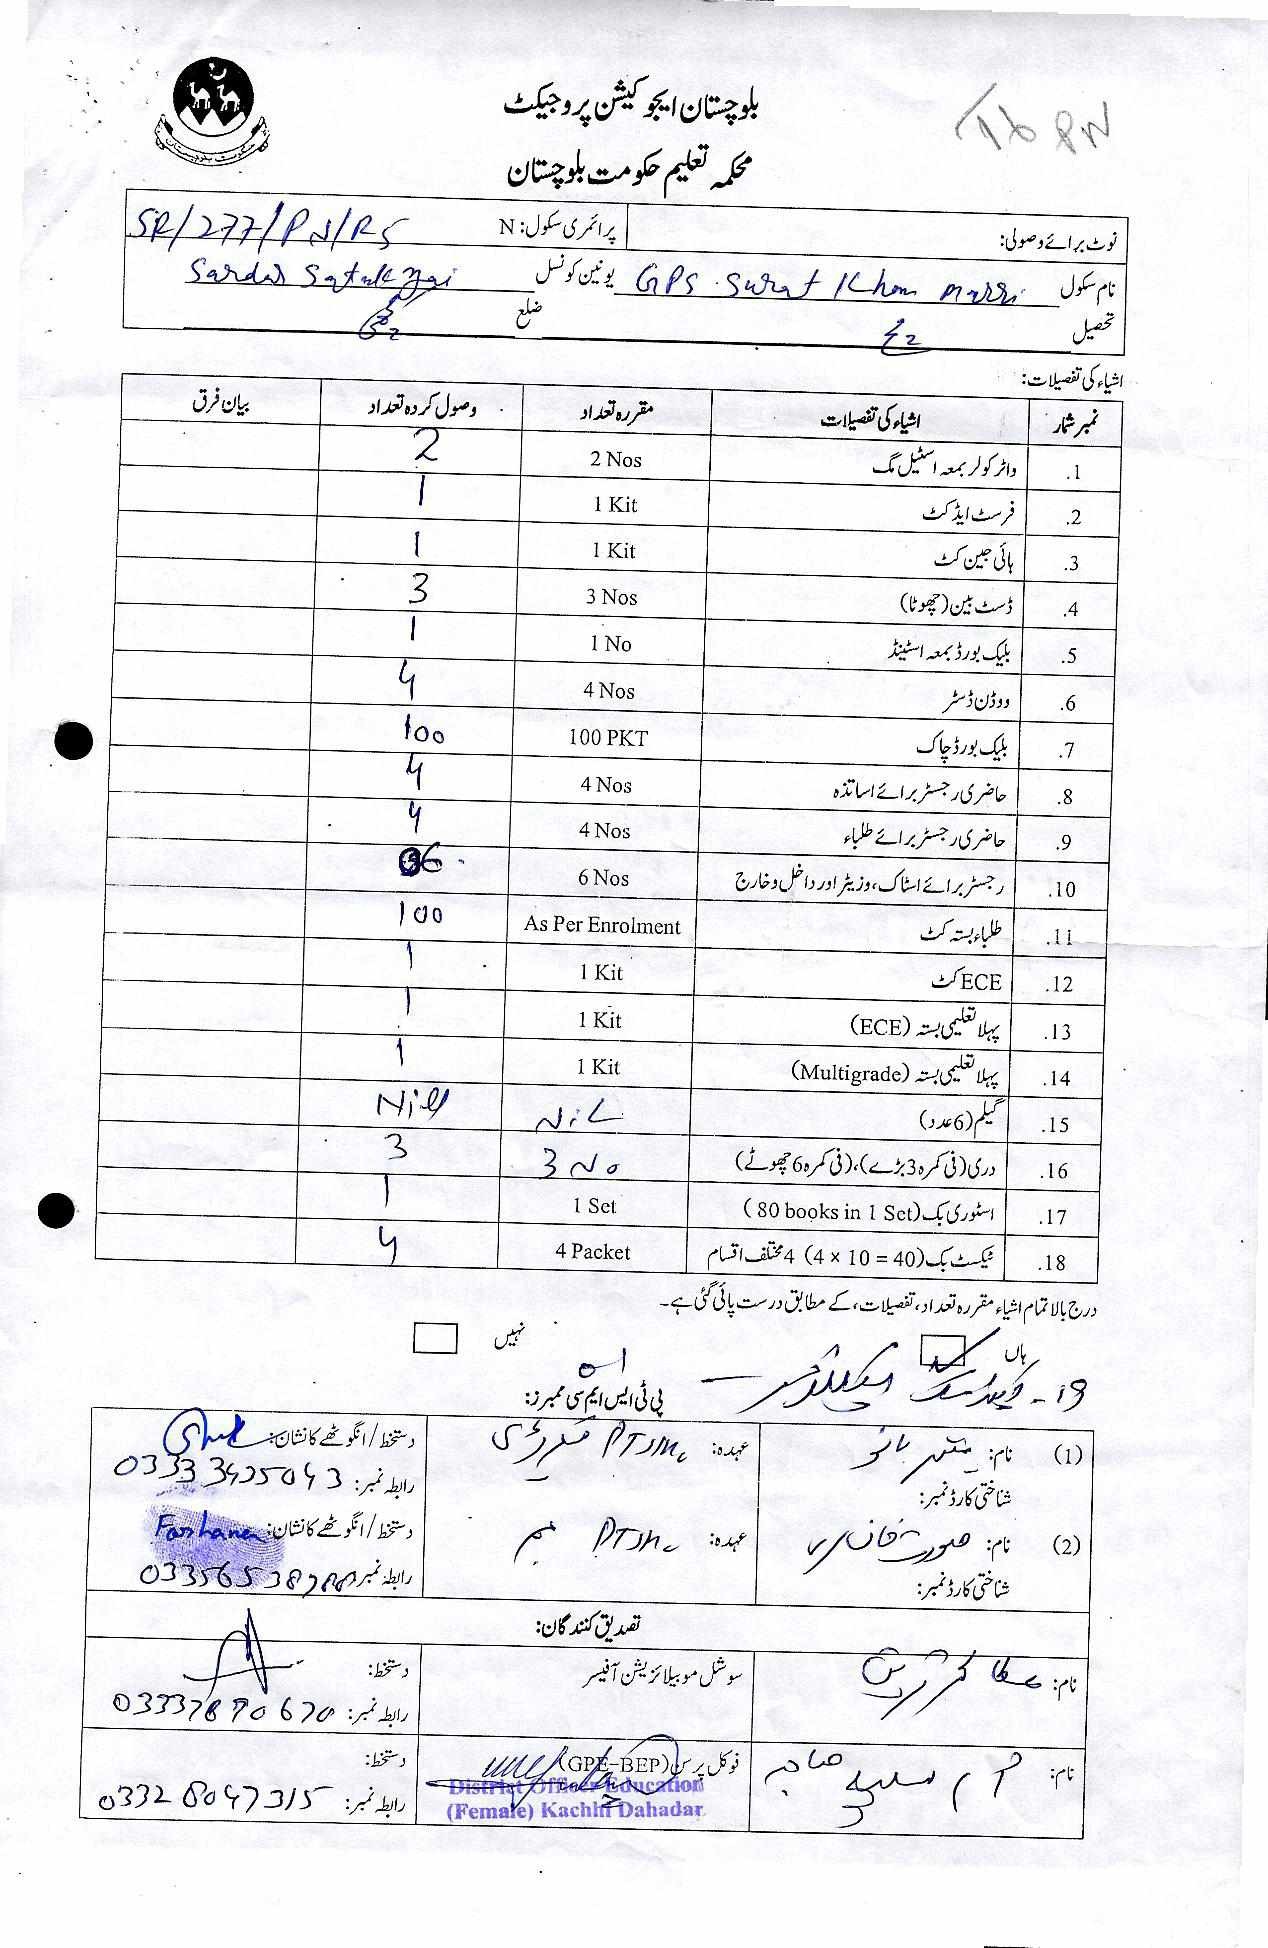 بلوچستان ایجوکیشن پروجیکٹ
محکمہ تعلیم حکومت بلوچستان
نوٹ برائے وصولی: پرائمری سکول: N SR/277/PN/RS
نام سکول GPS Surat Khan Marri یونین کونسل Sardar
تحصیل ضلع
اشیاء کی تفصیلات:
نمبر شمار اشیاء کی تفصیلات مقررہ تعداد وصول کردہ تعداد بیان فرق
1. واٹر کولر بمعہ اسٹیل مگ 2 Nos 2
2. فرسٹ ایڈ کٹ 1 Kit 1
3. ہائی جین کٹ 1 Kit 1
4. ڈسٹ بین (چھوٹا) 3 Nos 3
5. بلیک بورڈ بمعہ اسٹینڈ 1 No 1
6. ووڈن ڈسٹر 4 Nos 4
7. بلیک بورڈ چاک 100 PKT 100
8. حاضری رجسٹر برائے اساتذہ 4 Nos 4
9. حاضری رجسٹر برائے طلباء 4 Nos 4
10. رجسٹر برائے اسٹاک، وزیٹر اور داخل و خارج 6 Nos 06
11. طلباء بستہ کٹ As Per Enrolment 100
12. ECE کٹ 1 Kit 1
13. پہلا تعلیمی بستہ (ECE) 1 Kit 1
14. پہلا تعلیمی بستہ (Multigrade) 1 Kit 1
15. گیلم (6 عدد) NiL Nill
16. دری (فی کمرہ 3 بڑے)، (فی کمرہ 6 چھوٹے) 3 No 3
17. اسٹوری بک (80 books in 1 Set) 1 Set 1
18. ٹیکسٹ بک (4 × 10 = 40) 4 مختلف اقسام 4 Packet 4
درج بالا تمام اشیاء مقررہ تعداد، تفصیلات، کے مطابق درست پائی گئی ہے۔
ہاں نہیں
19-
پی ٹی ایس ایم سی ممبرز:
(1) نام: بانو عہدہ: PTSMc سیکرٹری دستخط / انگوٹھے کا نشان:
شناختی کارڈ نمبر: رابطہ نمبر: 03333425043
(2) نام: صورت خان عہدہ: PTSMc دستخط / انگوٹھے کا نشان: Farhana
شناختی کارڈ نمبر: رابطہ نمبر
تصدیق کنندگان:
نام: سوشل موبیلائزیشن آفیسر دستخط:
رابطہ نمبر: 03337870670
نام: فوکل پرسن (GPE-BEP) دستخط:
District Officer Education
(Female) Kachhi Dahadar
رابطہ نمبر: 03328047315